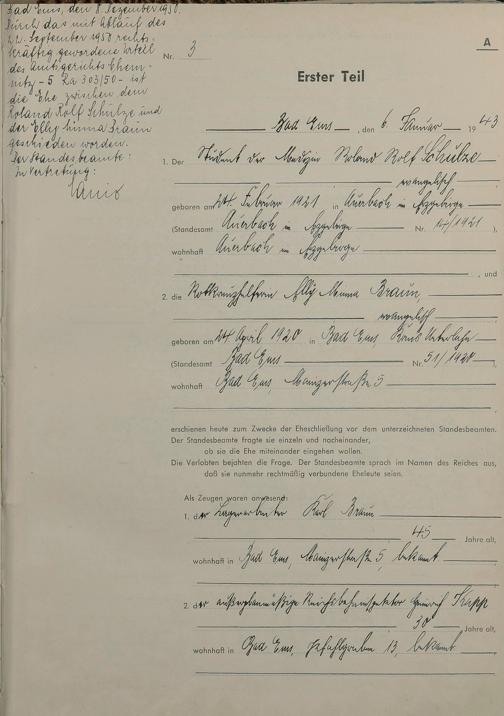 Bad Ems, den 8. Dezember 1950.
Durch das mit Ablauf des
22. September 1950 rechts-
kräftig gewordene Urteil
des Amtsgerichts Chem-
nitz - 5 Ra 303/50 - ist
die Ehe zwischen dem
Roland Rolf Schulze und
der Elly Minna Braun
geschieden worden.
Der Standesbeamte:
In Vertretung:
A
Nr. 3
Erster Teil
Bad Ems, den 6. Januar 1943
1. Der Student der Medizin Roland Rolf Schulze
evangelisch
geboren am 24. Februar 1921 in Auerbach in Erzgebirge
(Standesamt Auerbach in Erzgebirge Nr. 14/1921),
wohnhaft Auerbach in Erzgebirge
, und
2. die Rotkreuzhelferin Elly Minna Braun,
evangelisch
geboren am 24. April 1920 in Bad Ems Kreis Unterlahn
(Standesamt Bad Ems Nr. 51/1920),
wohnhaft Bad Ems, Mainzerstraße 5
erschienen heute zum Zwecke der Eheschließung vor dem unterzeichneten Standesbeamten.
Der Standesbeamte fragte sie einzeln und nacheinander,
ob sie die Ehe miteinander eingehen wollen.
Die Verlobten bejahten die Frage. Der Standesbeamte sprach im Namen des Reiches aus,
daß sie nunmehr rechtmäßig verbundene Eheleute seien.
Als Zeugen waren anwesend:
1. der Lagerarbeiter Karl Braun
45 Jahre alt,
wohnhaft in Bad Ems, Mainzerstraße 5, bekannt
2. der außerplanmäßige Reichsbahninspektor Heinrich Kapp
30 Jahre alt,
wohnhaft in Bad Ems, 13, bekannt